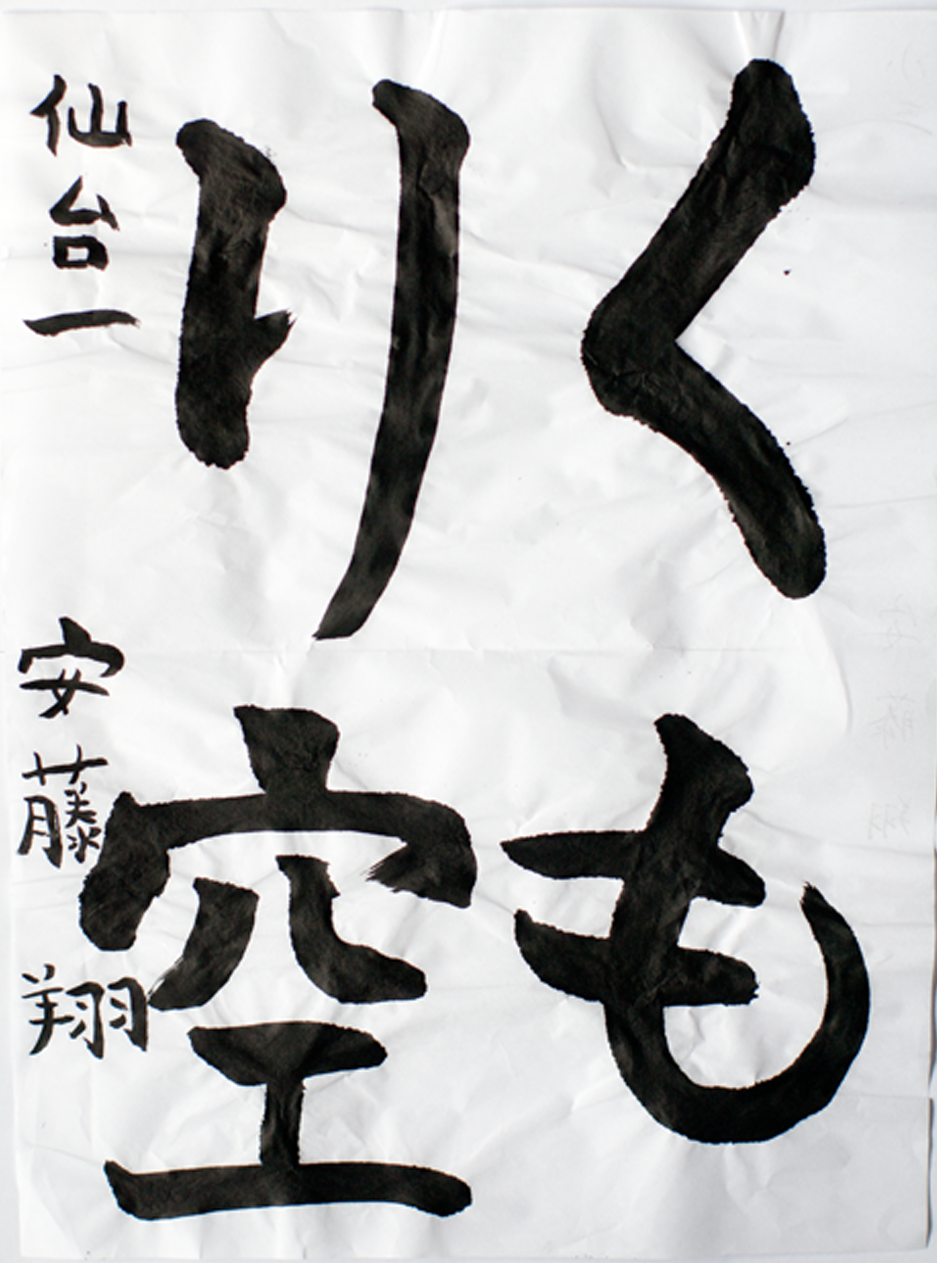 くも
り空
仙台一 安藤翔